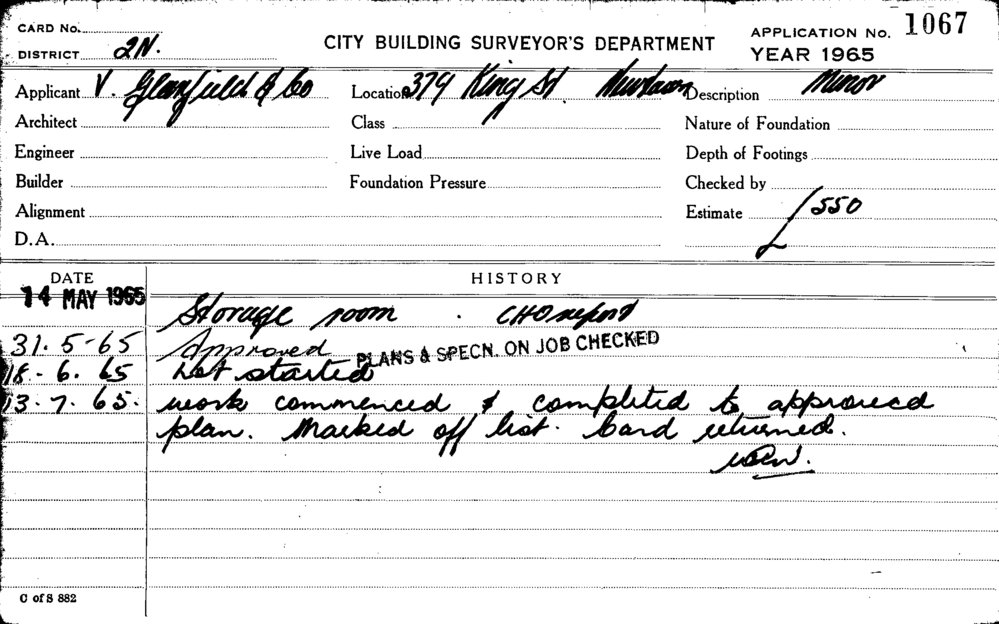 CARD No.
DISTRICT 2N.
CITY BUILDING SURVEYOR'S DEPARTMENT
APPLICATION No. 1067
YEAR 1965
Applicant V. Glanfield & Co Location 379 King St. Newtown Description Minor
Architect Class Nature of Foundation
Engineer Live Load Depth of Footings
Builder Foundation Pressure Checked by
Alignment Estimate £550
D.A.
DATE HISTORY
14 MAY 1965 Storage room . CHO report
31.5-65 Approved PLANS & SPECN. ON JOB CHECKED
18.-6.65 Not started
13.7.65. work commenced & completed to approved
plan. Marked off list. Card returned.
C of S 882